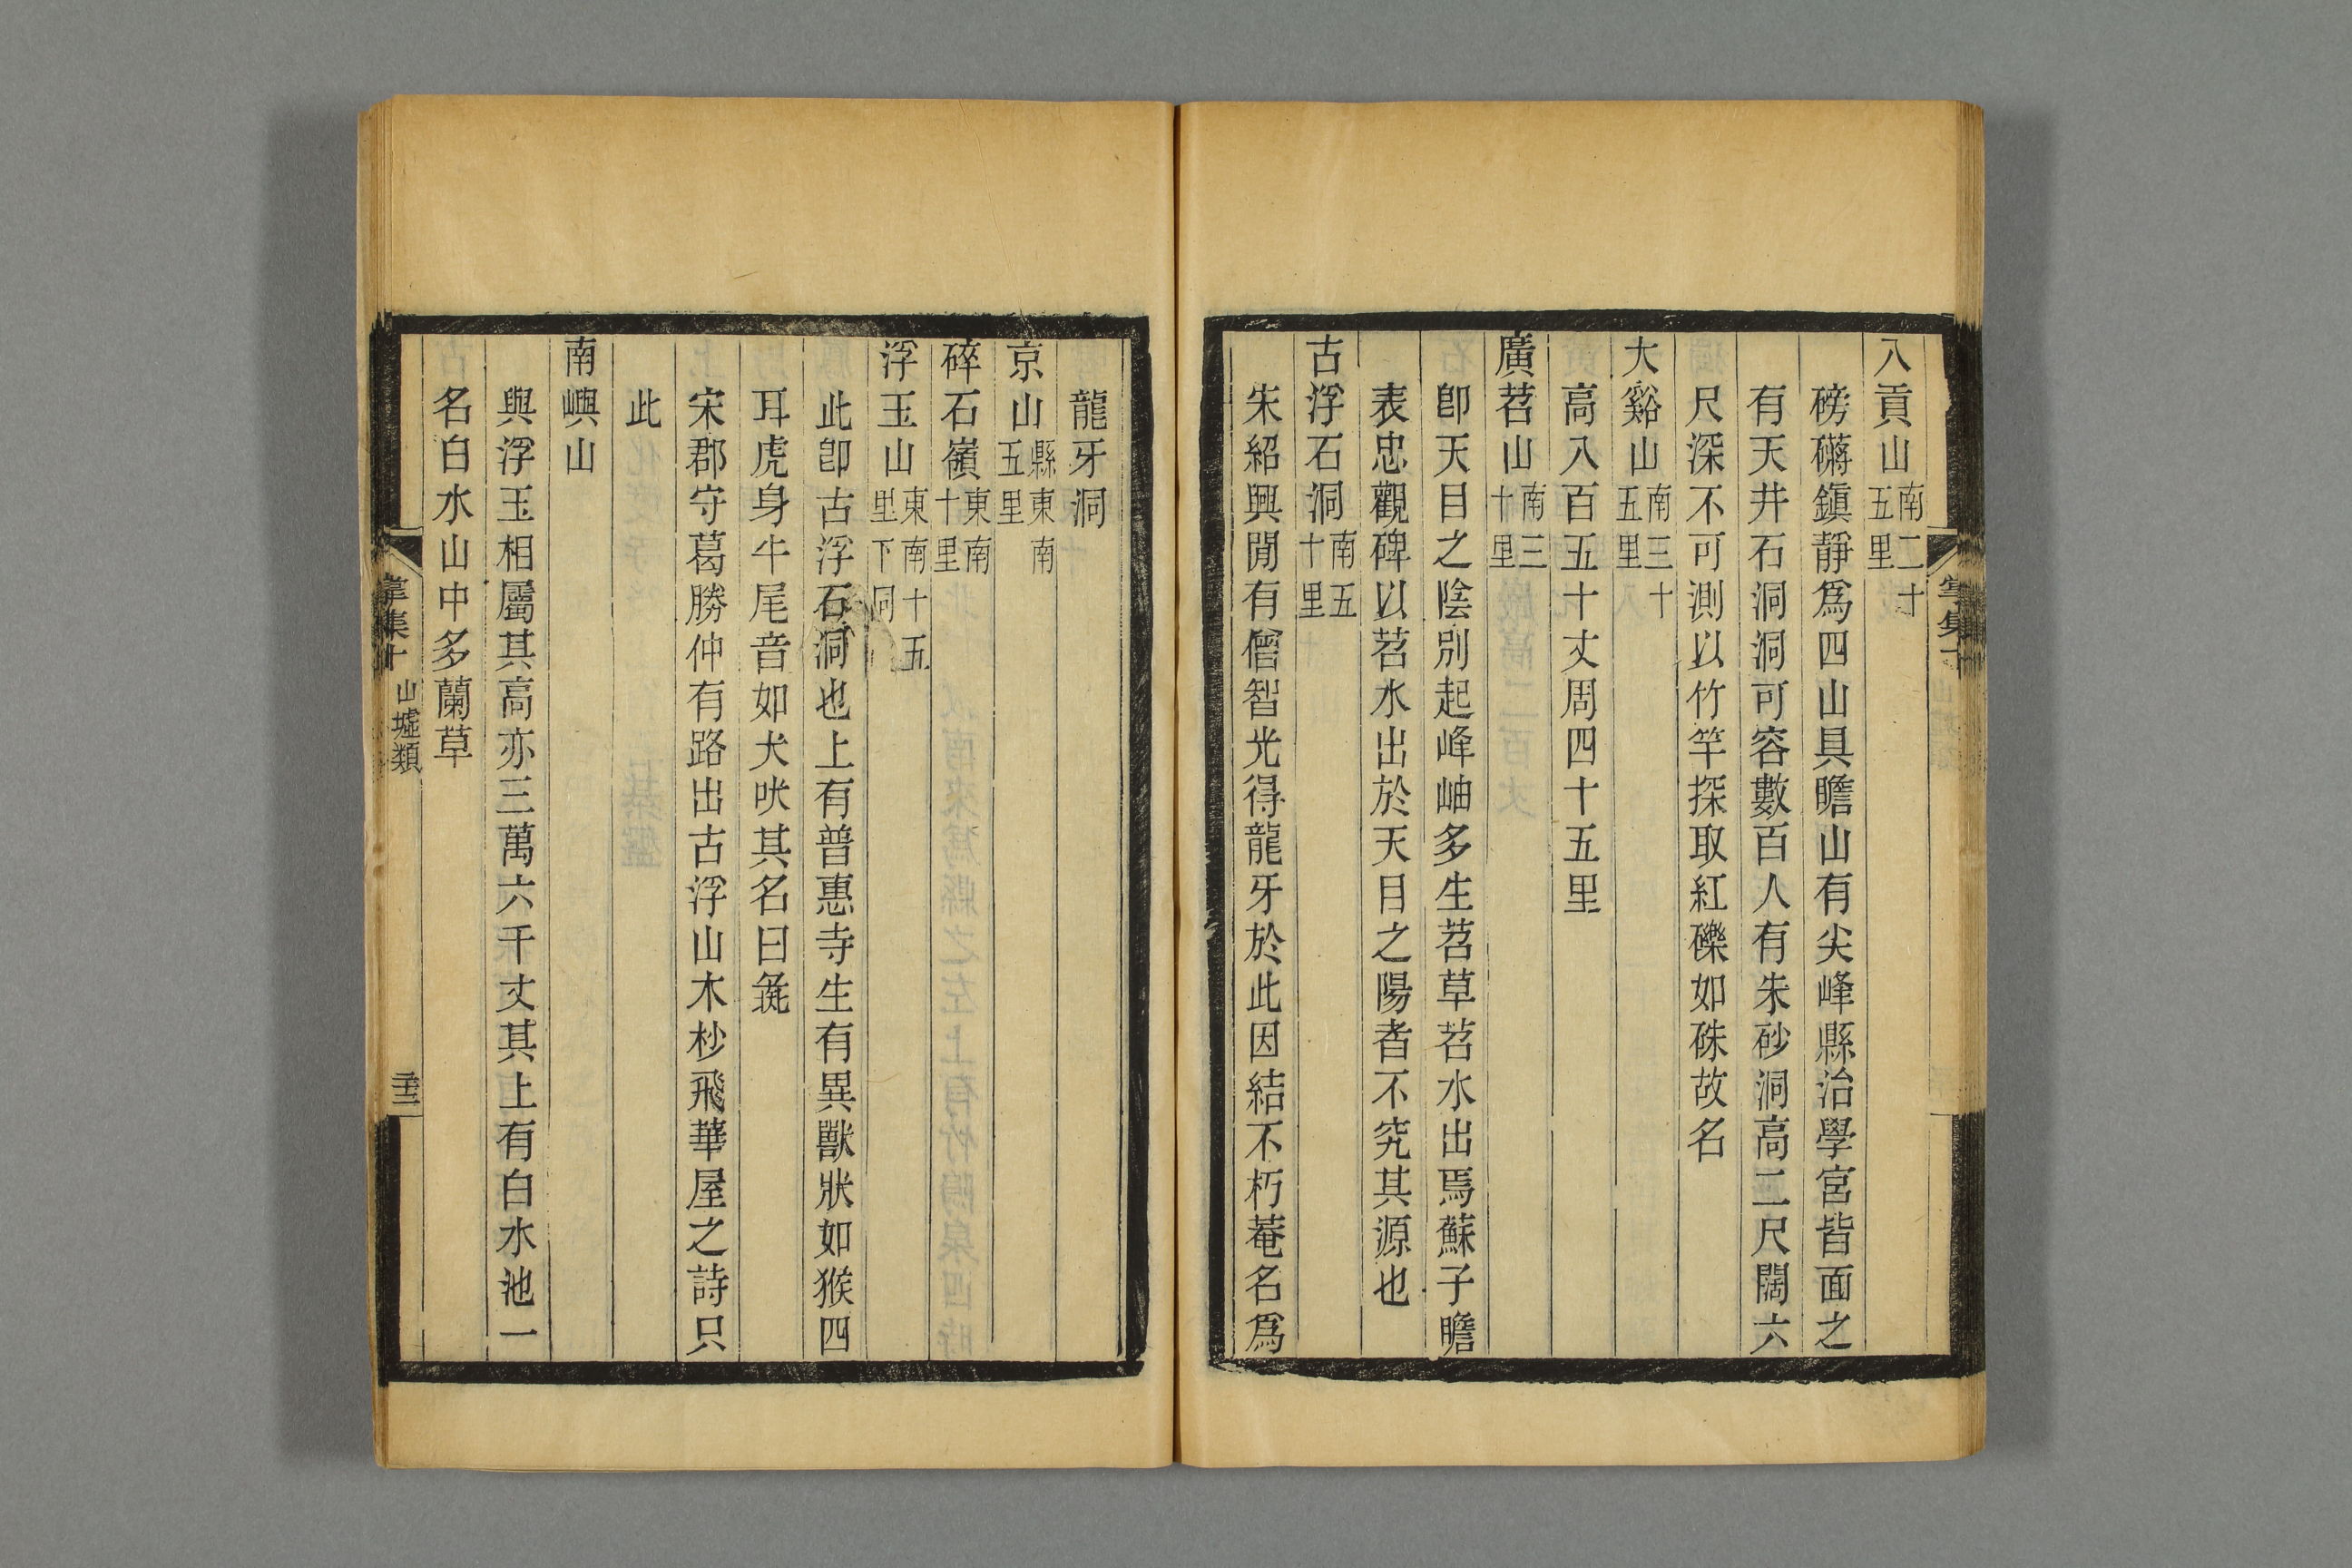 八貢山南二十五里
磅礴鎭靜爲四山具瞻山有尖峰縣治學宮皆面之
有天井石洞洞可容數百人有朱砂洞高二尺闊六
尺深不可測以竹竿探取紅礫如硃故名
大谿山南三十五里
高八百五十丈周四十五里
廣苕山南三十里
卽天目之陰別起峰岫多生苕草苕水出焉蘇子瞻
表忠觀碑以苕水出於天目之陽者不究其源也
古浮石洞南五十里
朱紹興閒有僧智光得龍牙於此因結不朽菴名爲
龍牙洞
京山縣東南五里
碎石嶺東南十里
浮玉山東南十五里下同
此卽古浮石洞也上有普惠寺生有異獸狀如猴四
耳虎身牛尾音如犬吠其名曰彘
宋郡守葛勝仲有路出古浮山木杪飛華屋之詩只
此
南嶼山
與浮玉相屬其高亦三萬六千丈其上有白水池一
名白水山中多蘭草
掌集十
山墟類